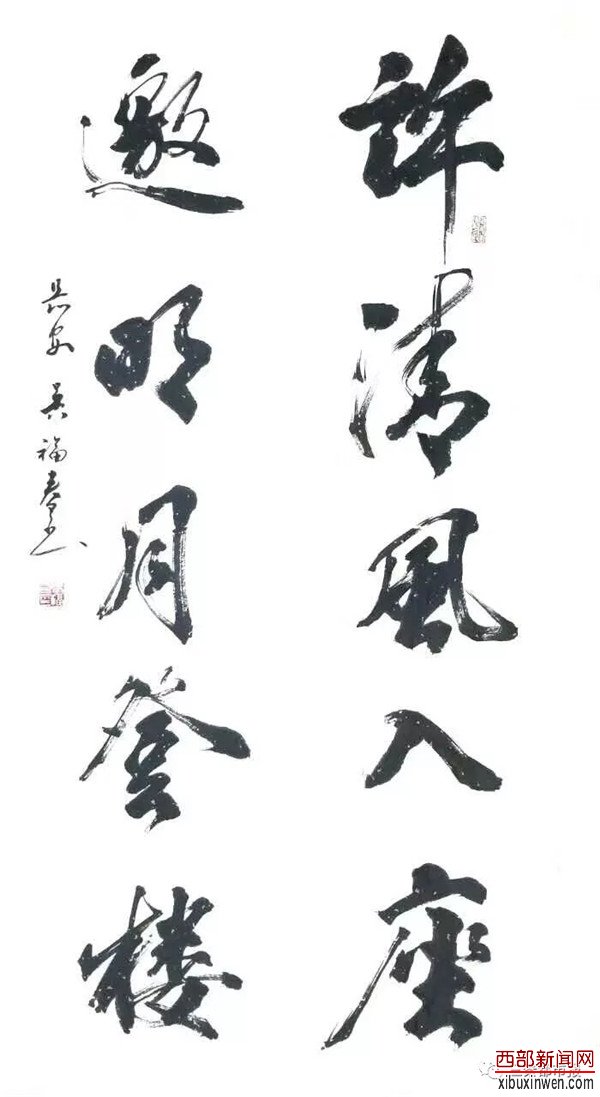 許清風入座
邀明月登楼
吴福春
西部新闻网
xibuxinwen.com